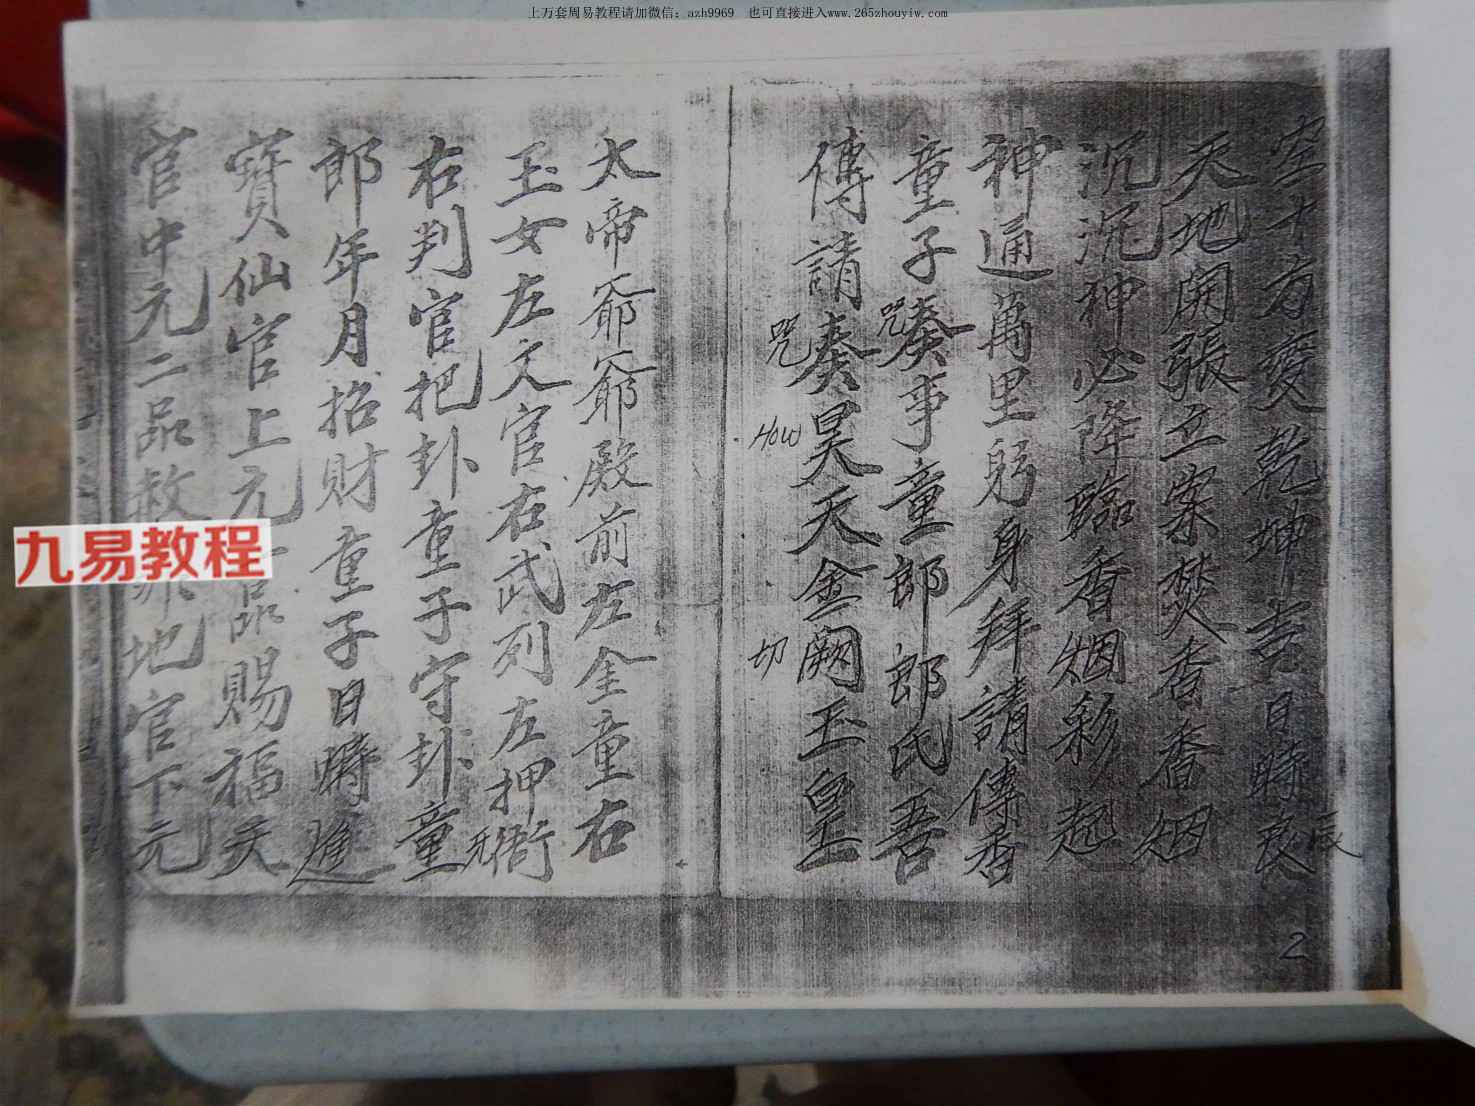 上万套周易教程请加微信：azh9969 也可直接进入www.265zhouyiw.com
空十方变乾坤吉日時良
辰
天地開張立案焚香香烟
沉沉神必降臨香烟彩起
神通萬里躬身拜請傳香
童子奏事童郎郎氏吾
咒
傳請奏昊天金阙玉皇
咒
How
切
太帝爺爺殿前左金童右
玉女左文官右武列左押衙
右判官把卦童子守卦童
郎年月招財童子日時進
寶仙官上元一品賜福天
官中元二品赦罪地官下元
九易教程
2